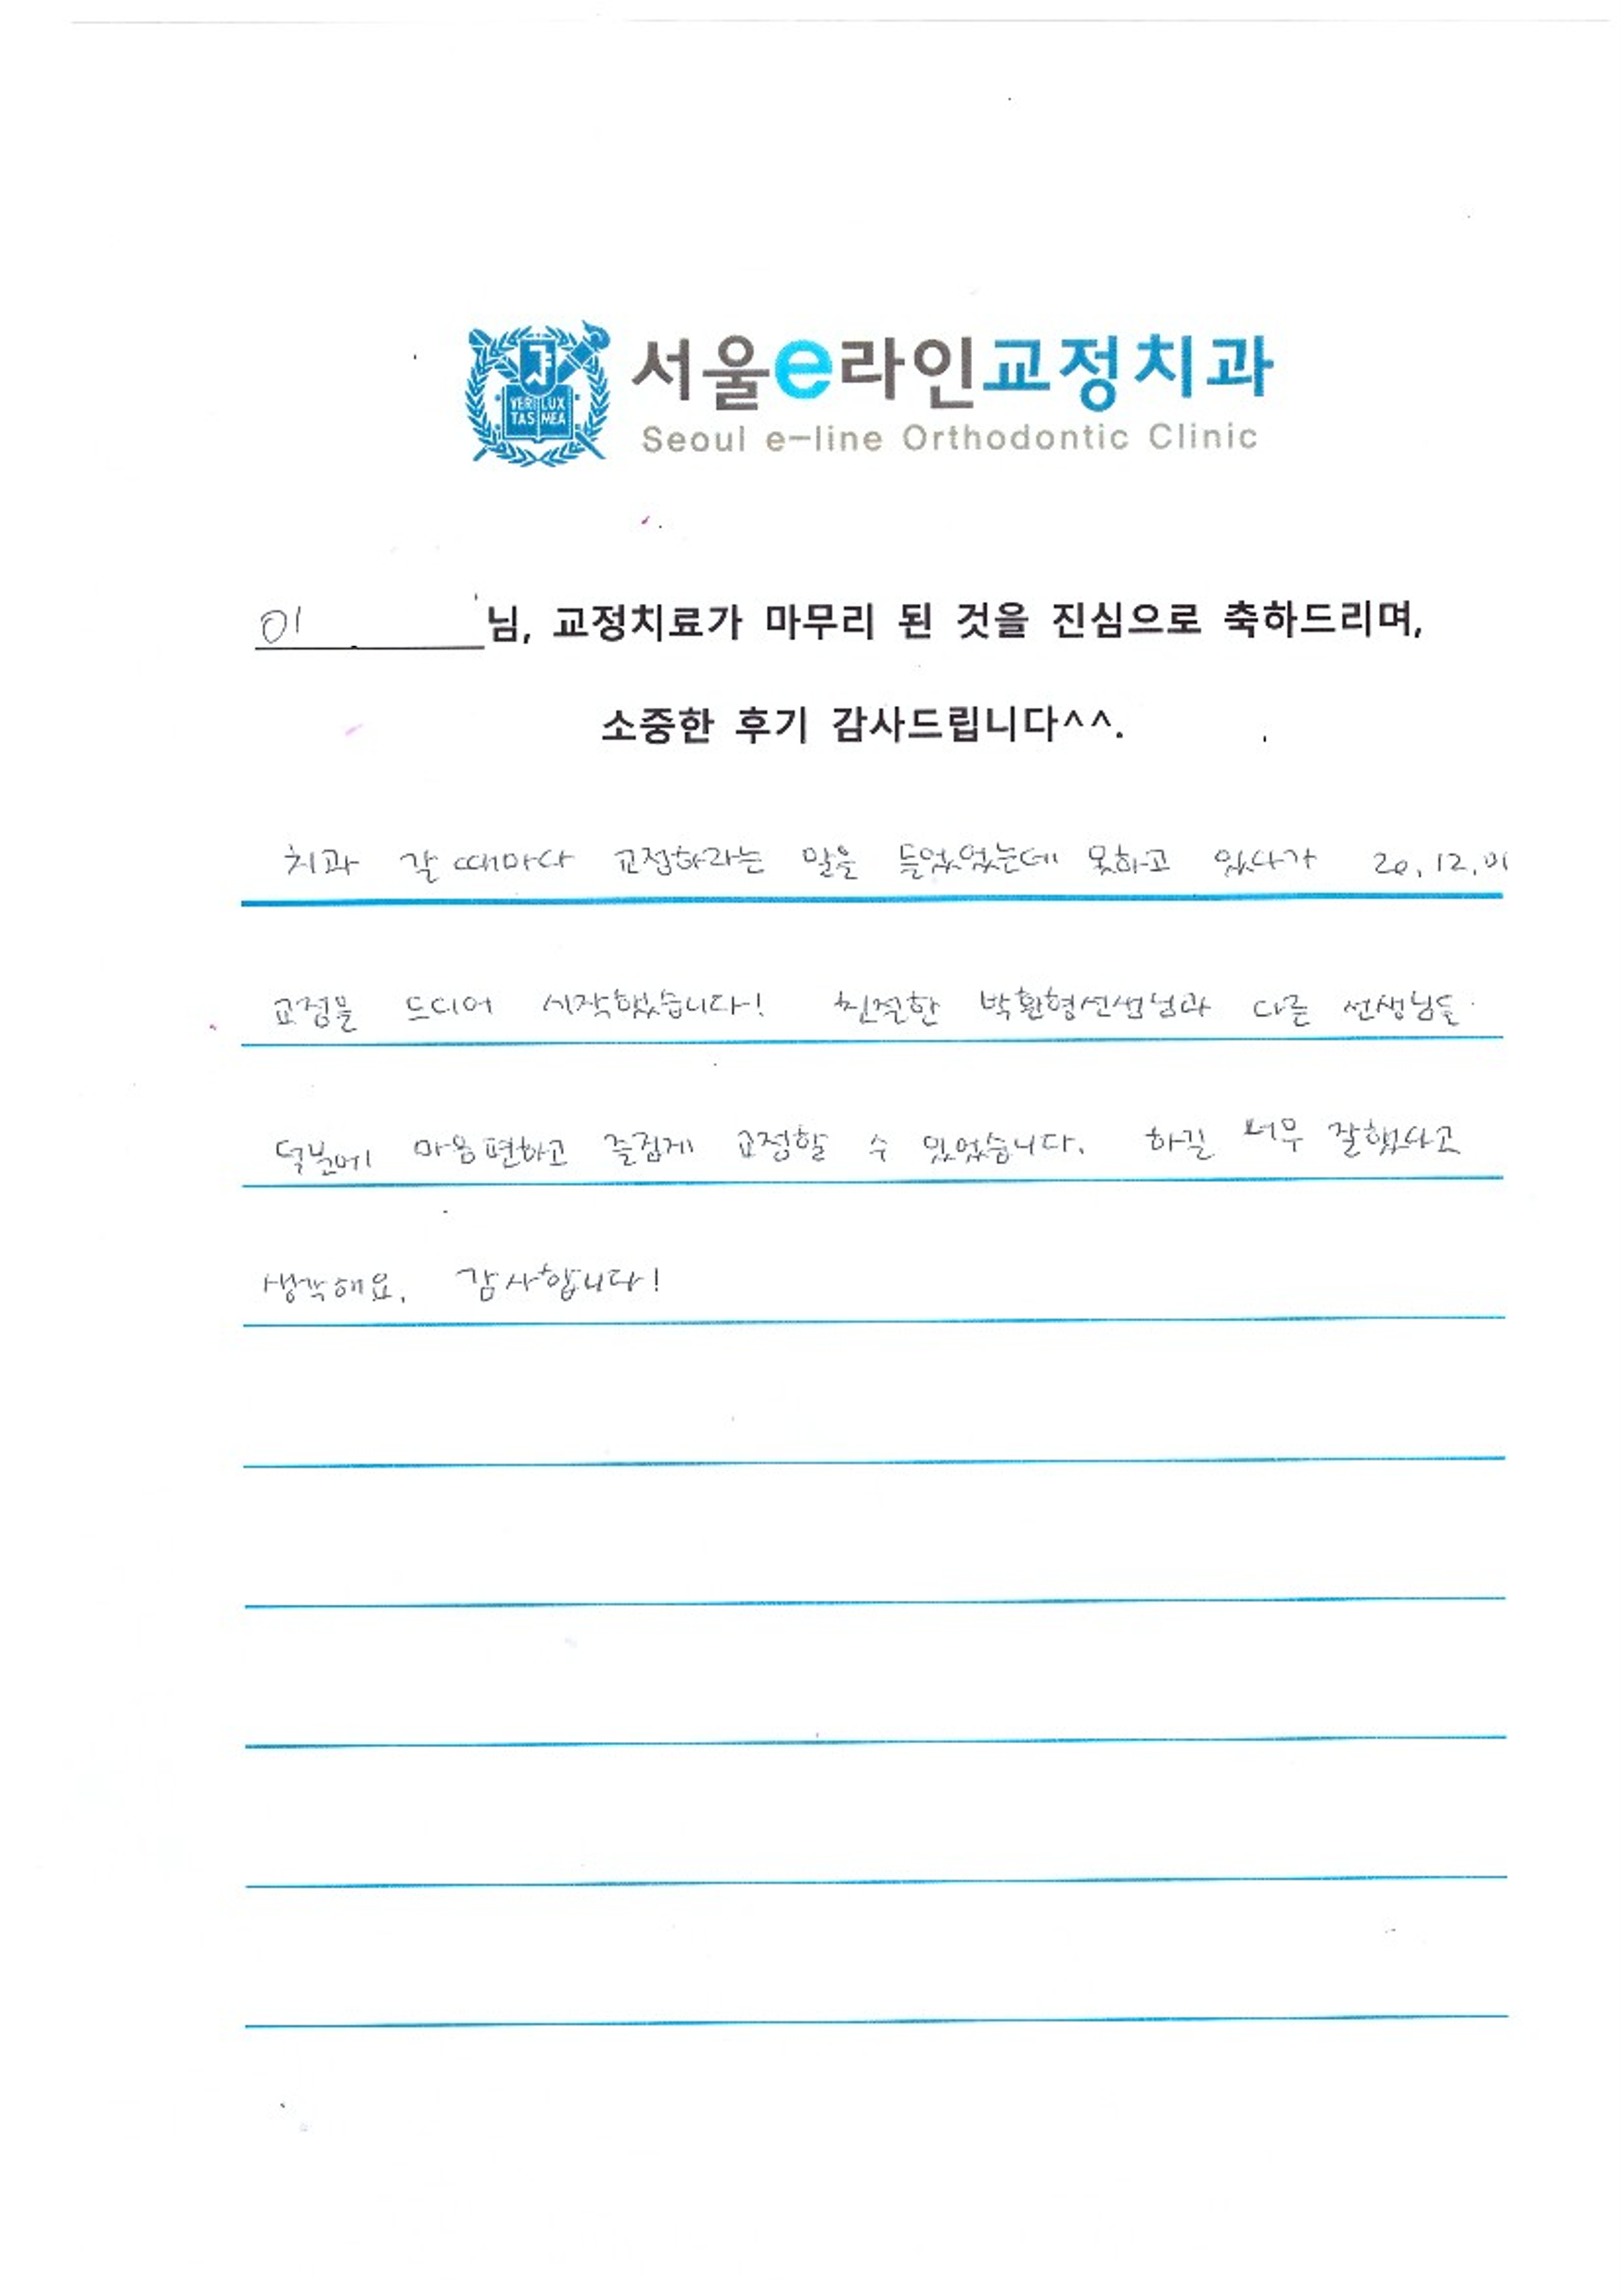 VERI LUX
TAS MEA
서울e라인교정치과
Seoul e-line Orthodontic Clinic
이 님, 교정치료가 마무리 된 것을 진심으로 축하드리며,
소중한 후기 감사드립니다^^.
치과 갈 때마다 교정하라는 말을 들었었는데 못하고 있다가 20.12.01
교정을 드디어 시작했습니다! 친절한 박환형선생님과 다른 선생님들
덕분에 마음편하고 즐겁게 교정할 수 있었습니다. 하길 너무 잘했다고
생각해요. 감사합니다!